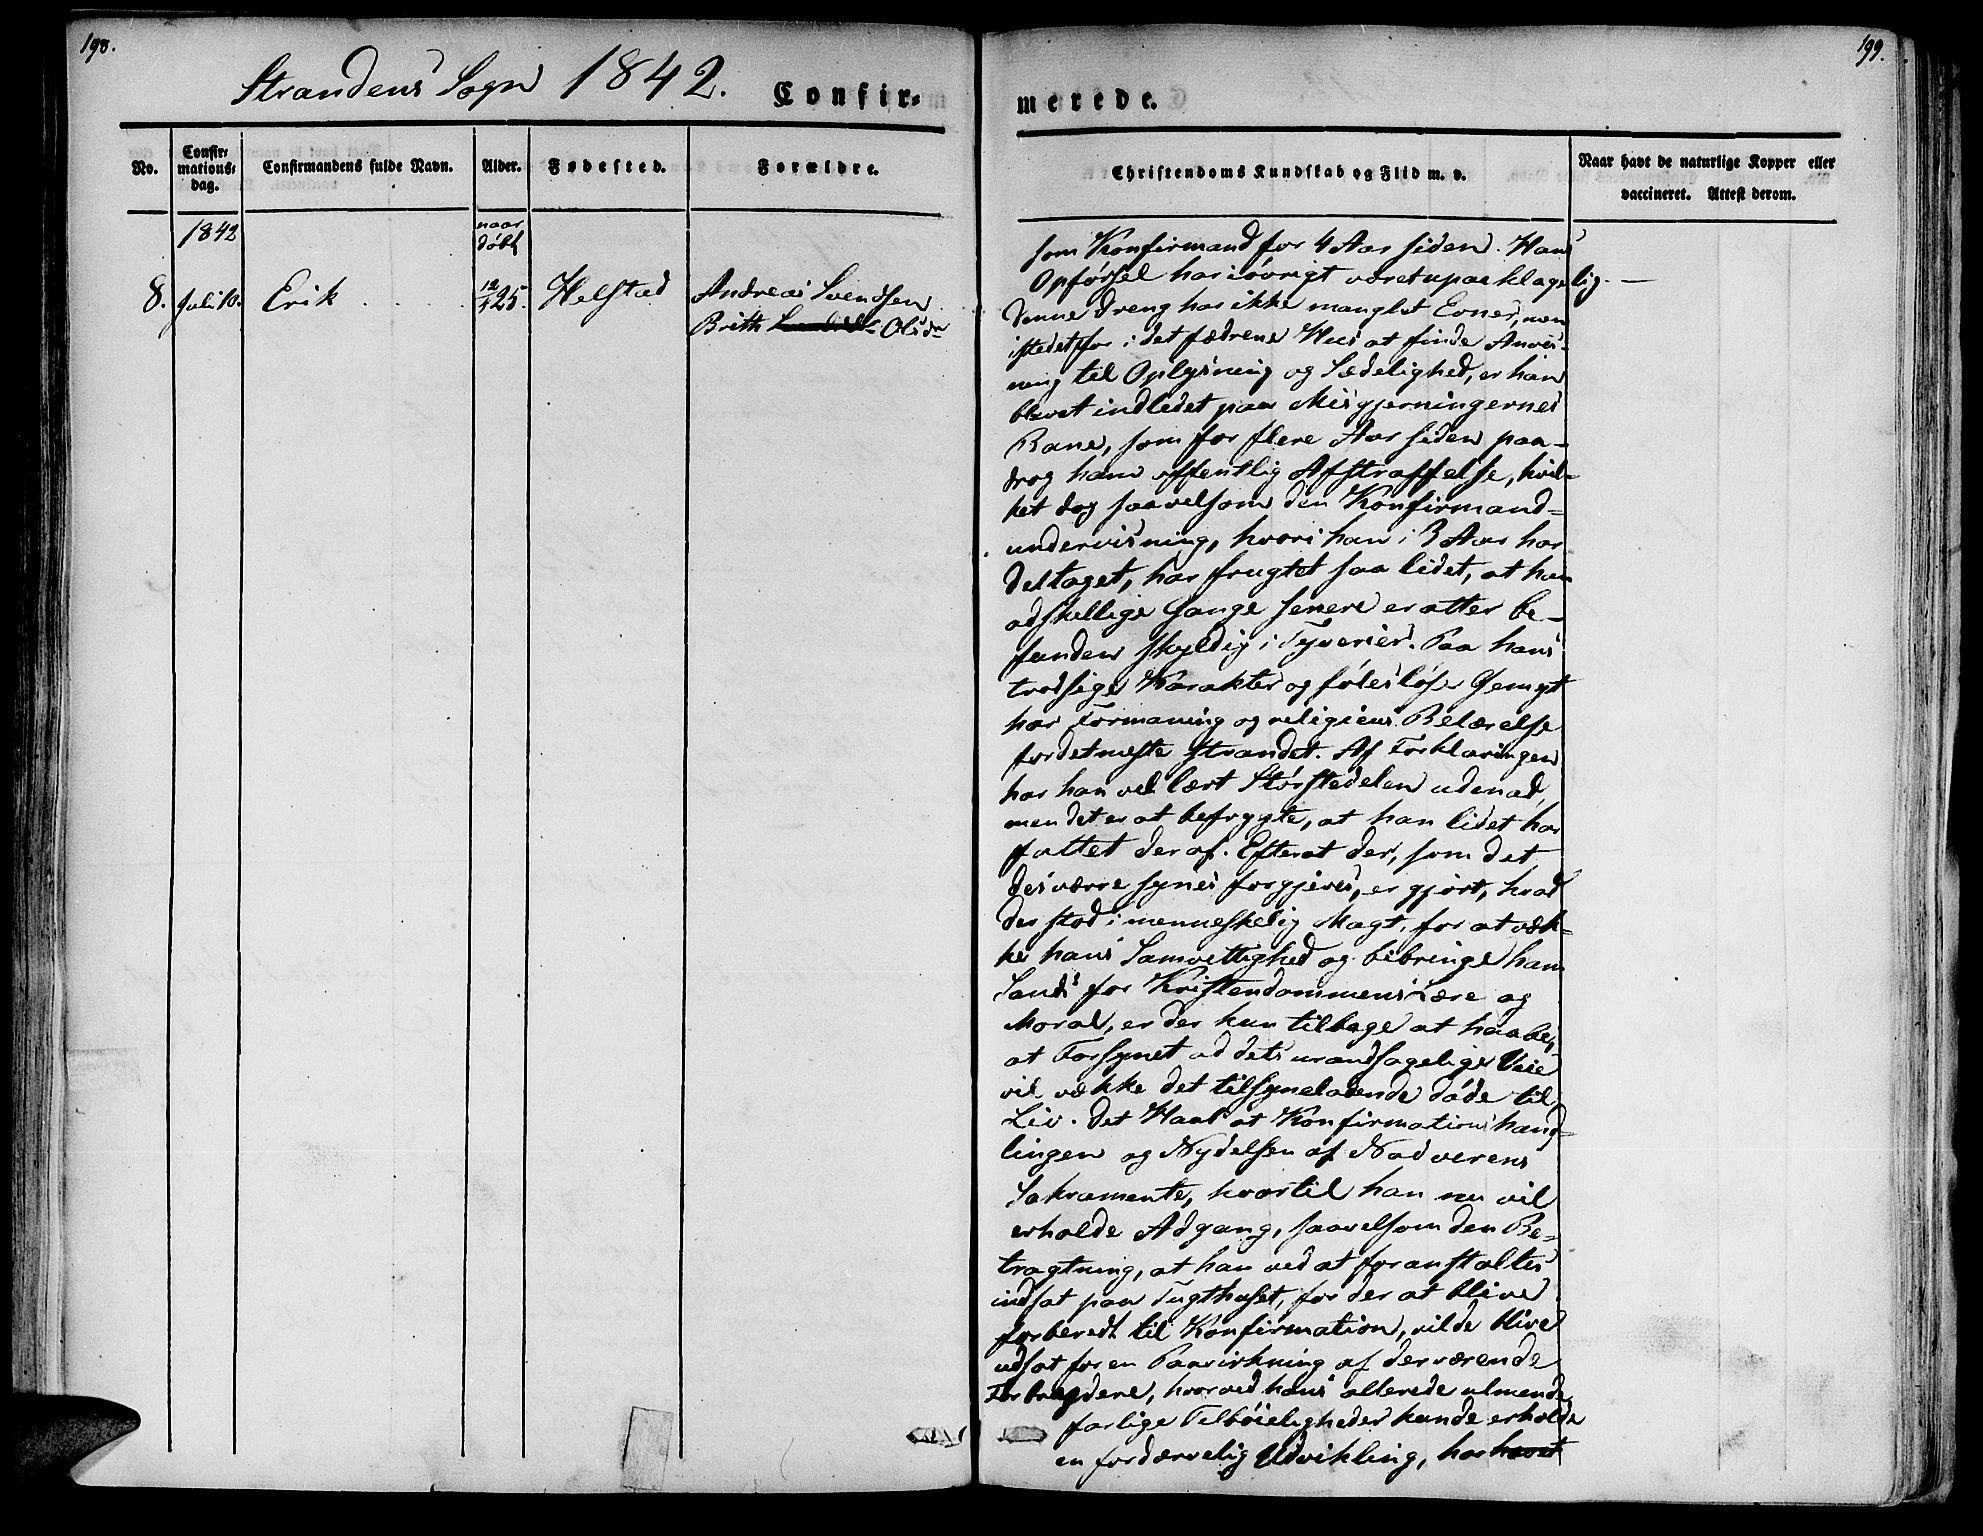 198.
Strandens Sogn 1842. Confir=
No.
Confir=
mations=
dag.
Confirmandens fulde Navn.
Alder.
Fødested.
Forældre.
1842
naar
døbt
8. Juli 10. Erik . . . . 12/1 25. Helstad Andreas Svendsen
Brith Olsdr
199.
merede.
Christendoms Kundskab og Flid m. v.
Naar havt de naturlige Kopper eller
vaccineret. Attest derom.
som Konfirmand for 4 Aar siden. Hans
Opførsel har iøvrigt været upaaklagelig. —
Denne Dreng har ikke manglet Evner, men
istedetfor i det fædrene Huus at finde Anvis-
ning til Oplysning og Sædelighed, er han
blevet indledet paa Misgjerningernes
Bane, som for flere Aar siden paa-
drog ham offentlig Afstraffelse, hvil-
ket dog saavelsom den Konfirmand-
undervisning, hvori han i 3 Aar har
deltaget, har frugtet saa lidet, at han
adskellige Gange senere er atter be-
funden skyldig i Tyverier. Paa hans
trodsige Karakter og følesløse Gemyt
har Formaning og religieus Belærelse
fordetmeste strandet. Af Forklaringen
har han vel lært Størstedelen udenad,
men det er at befrygte, at han lidet har
fattet deraf. Efterat der, som det
desværre synes forgjeves, er gjort, hvad
der stod i menneskelig Magt, for at væk-
ke hans Samvittighed og bibringe ham
Sands for Kristendommens Lære og
Moral, er der kun tilbage at haabe,
at Forsynet ad dets urandsagelige Veie
vil vække det tilsyneladende døde til
Liv. Det Haab at Konfirmationshand-
lingen og Nydelsen af Nadverens
Sakramente, hvortil han nu vil
erholde Adgang, saavelsom den Be-
tragtning, at han ved at foranstaltes
indsat paa Tugthuset, for der at blive
forberedt til Konfirmation, vilde blive
udsat for en Paavirkning af derværende
Forbrydere, hvorved hans allerede ulmende
farlige Tilbøieligheder kunde erholde
en fordærvelig Udvikling, har havt